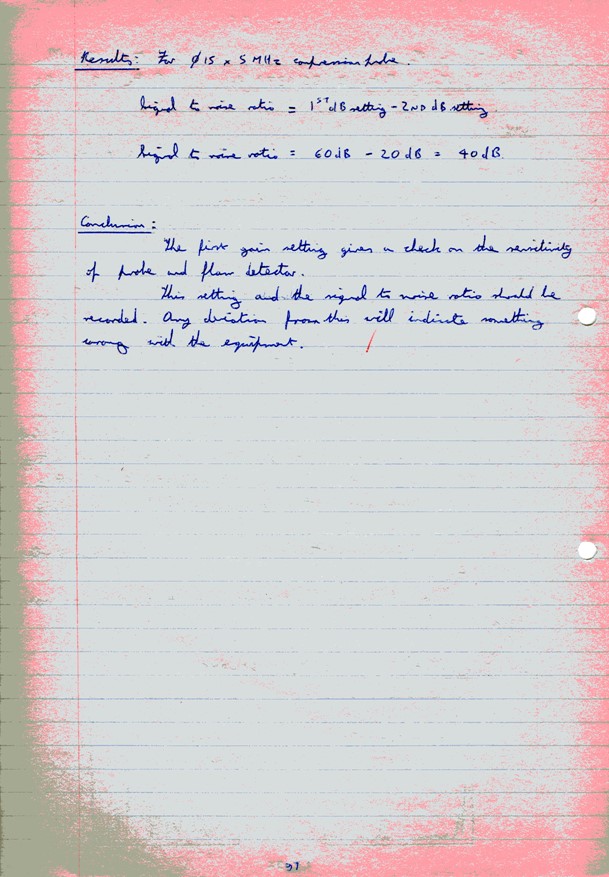 Results: For ∅ 15 x 5 MHz compression probe.
Signal to noise ratio = 1ST dB setting - 2ND dB setting
Signal to noise ratio = 60 dB - 20 dB = 40 dB.
Conclusion:
The first gain setting gives a check on the sensitivity
of probe and flaw detector.
This setting and the signal to noise ratio should be
recorded. Any deviation from this will indicate something
wrong with the equipment.